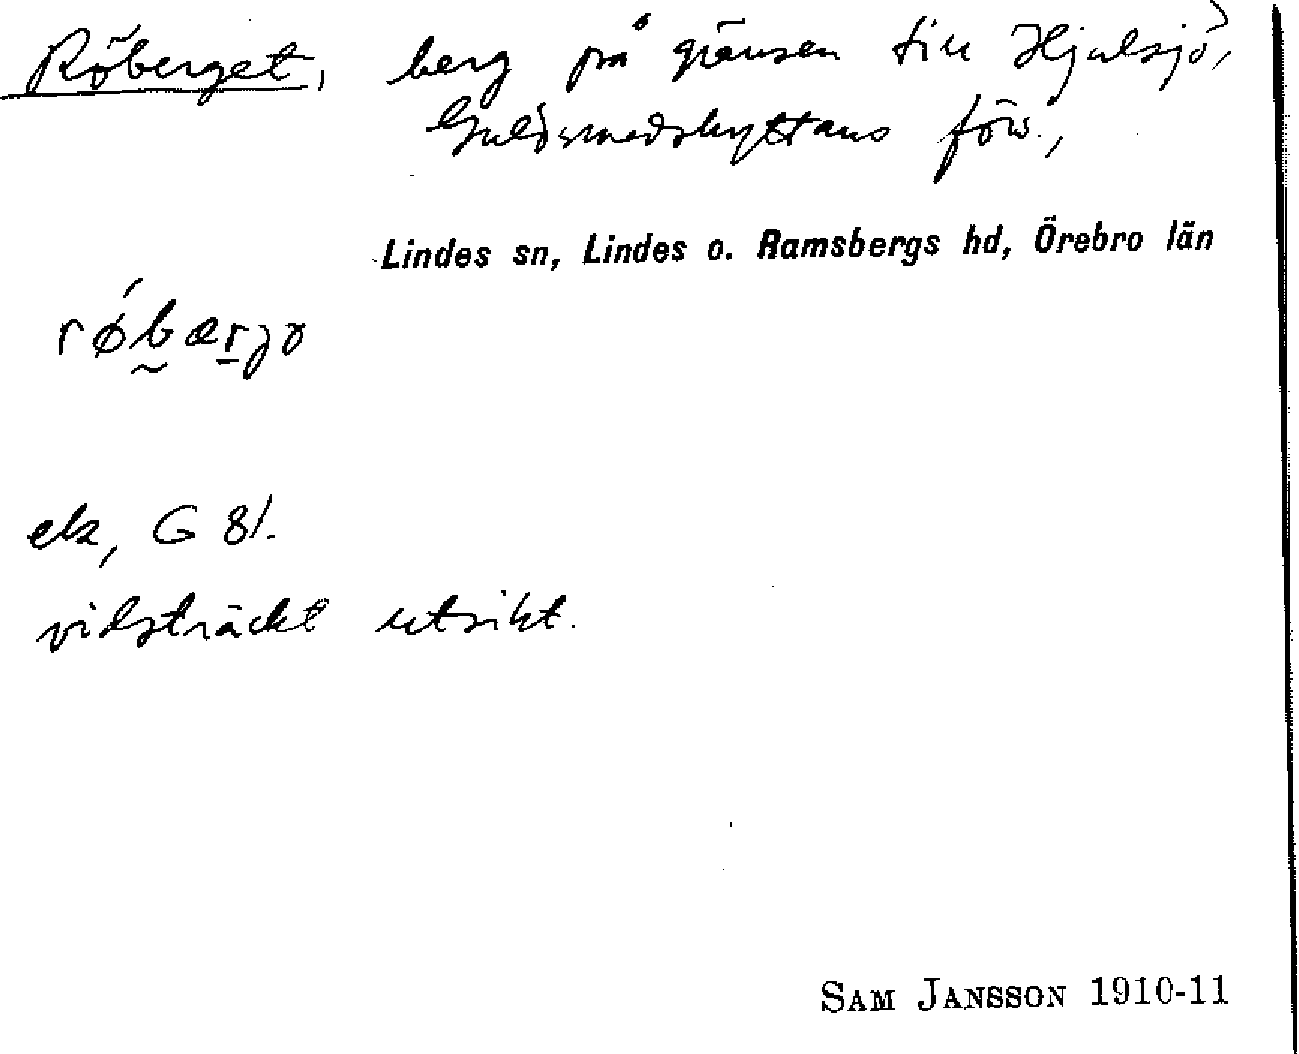 Röberget, berg på gränsen till Hjulsjö,
Guldsmedshyttans förs.,
Lindes sn, Lindes o. Ramsbergs hd, Örebro län
ek, G 81.
vidsträckt utsikt.
SAM JANSSON 1910-11